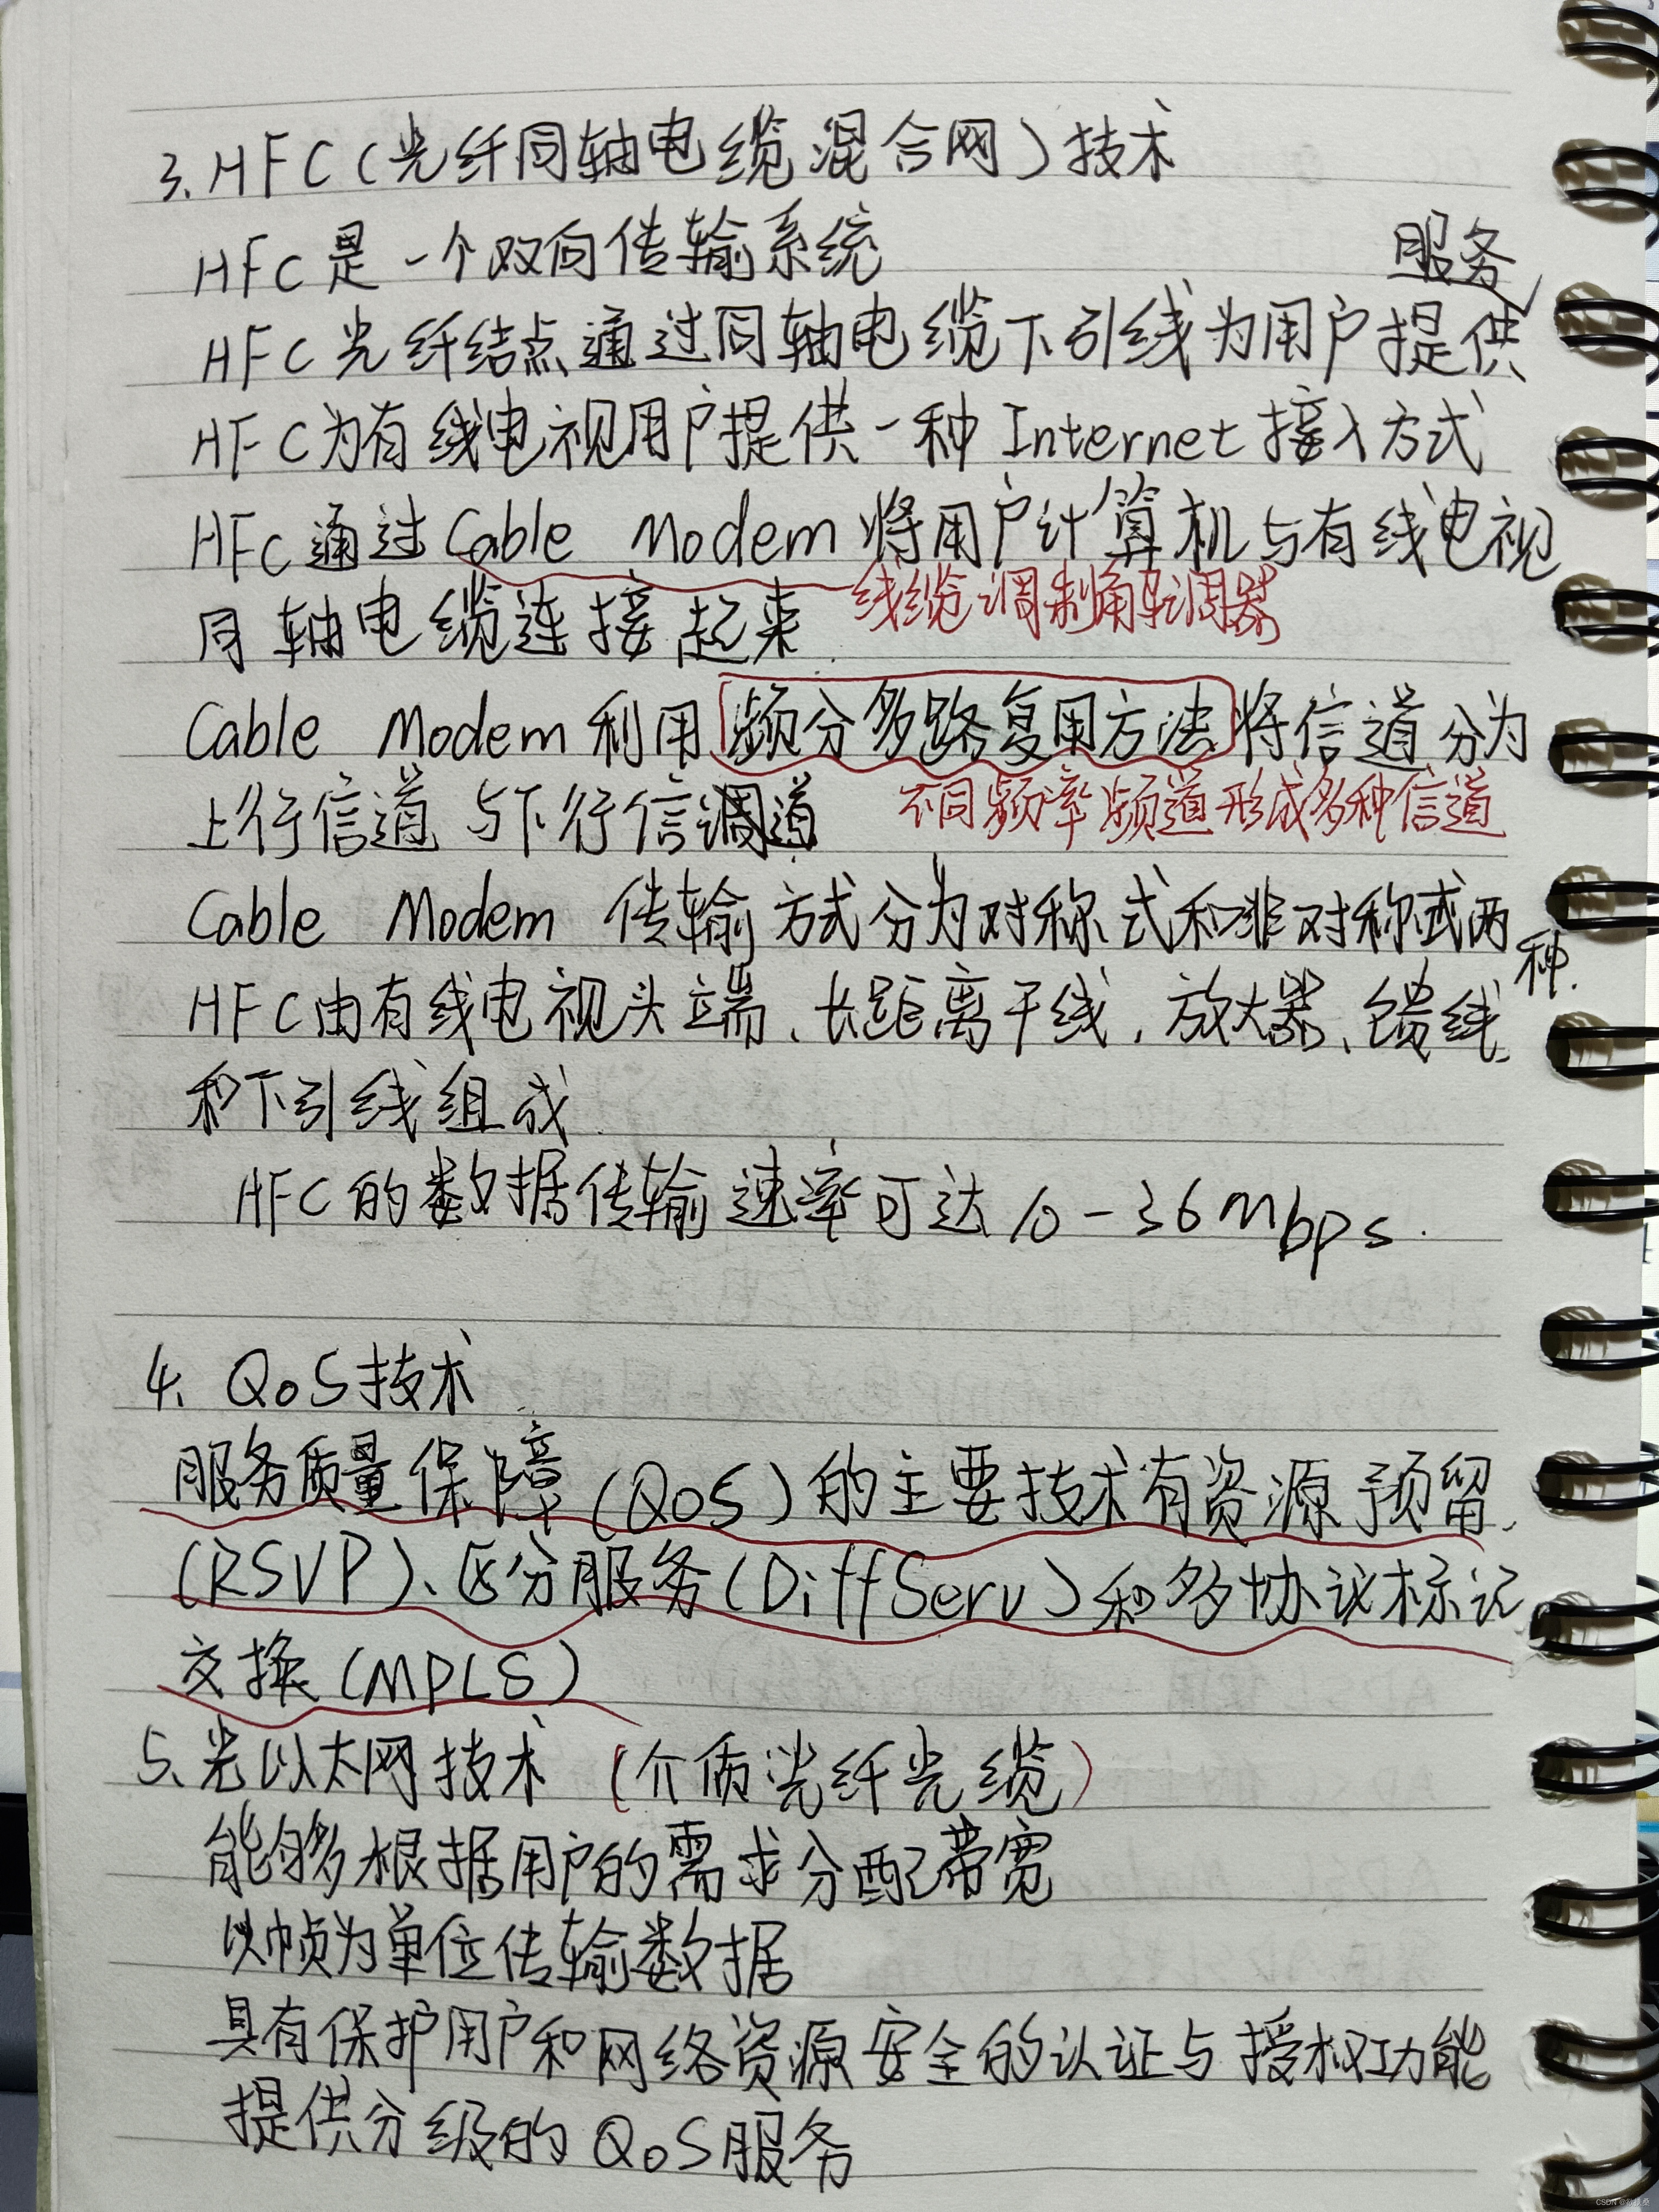 3. HFC(光纤同轴电缆混合网)技术
HFC是一个双向传输系统
服务
HFC光纤结点通过同轴电缆下引线为用户提供
HFC为有线电视用户提供一种Internet接入方式
HFC通过Cable Modem将用户计算机与有线电视
同轴电缆连接起来.
线缆调制解调器
Cable Modem利用频分多路复用方法将信道分为
上行信道与下行信道
不同频率频道形成多种信道
Cable Modem 传输方式分为对称式和非对称式两
种.
HFC由有线电视头端、长距离干线、放大器、馈线
和下引线组成.
HFC的数据传输速率可达10-36Mbps.
4. QoS技术
服务质量保障(QoS)的主要技术有资源预留
(RSVP)、区分服务(DiffServ)和多协议标记
交换(MPLS)
5、光以太网技术 (介质光纤光缆)
能够根据用户的需求分配带宽
以帧为单位传输数据
具有保护用户和网络资源安全的认证与授权功能
提供分级的QoS服务